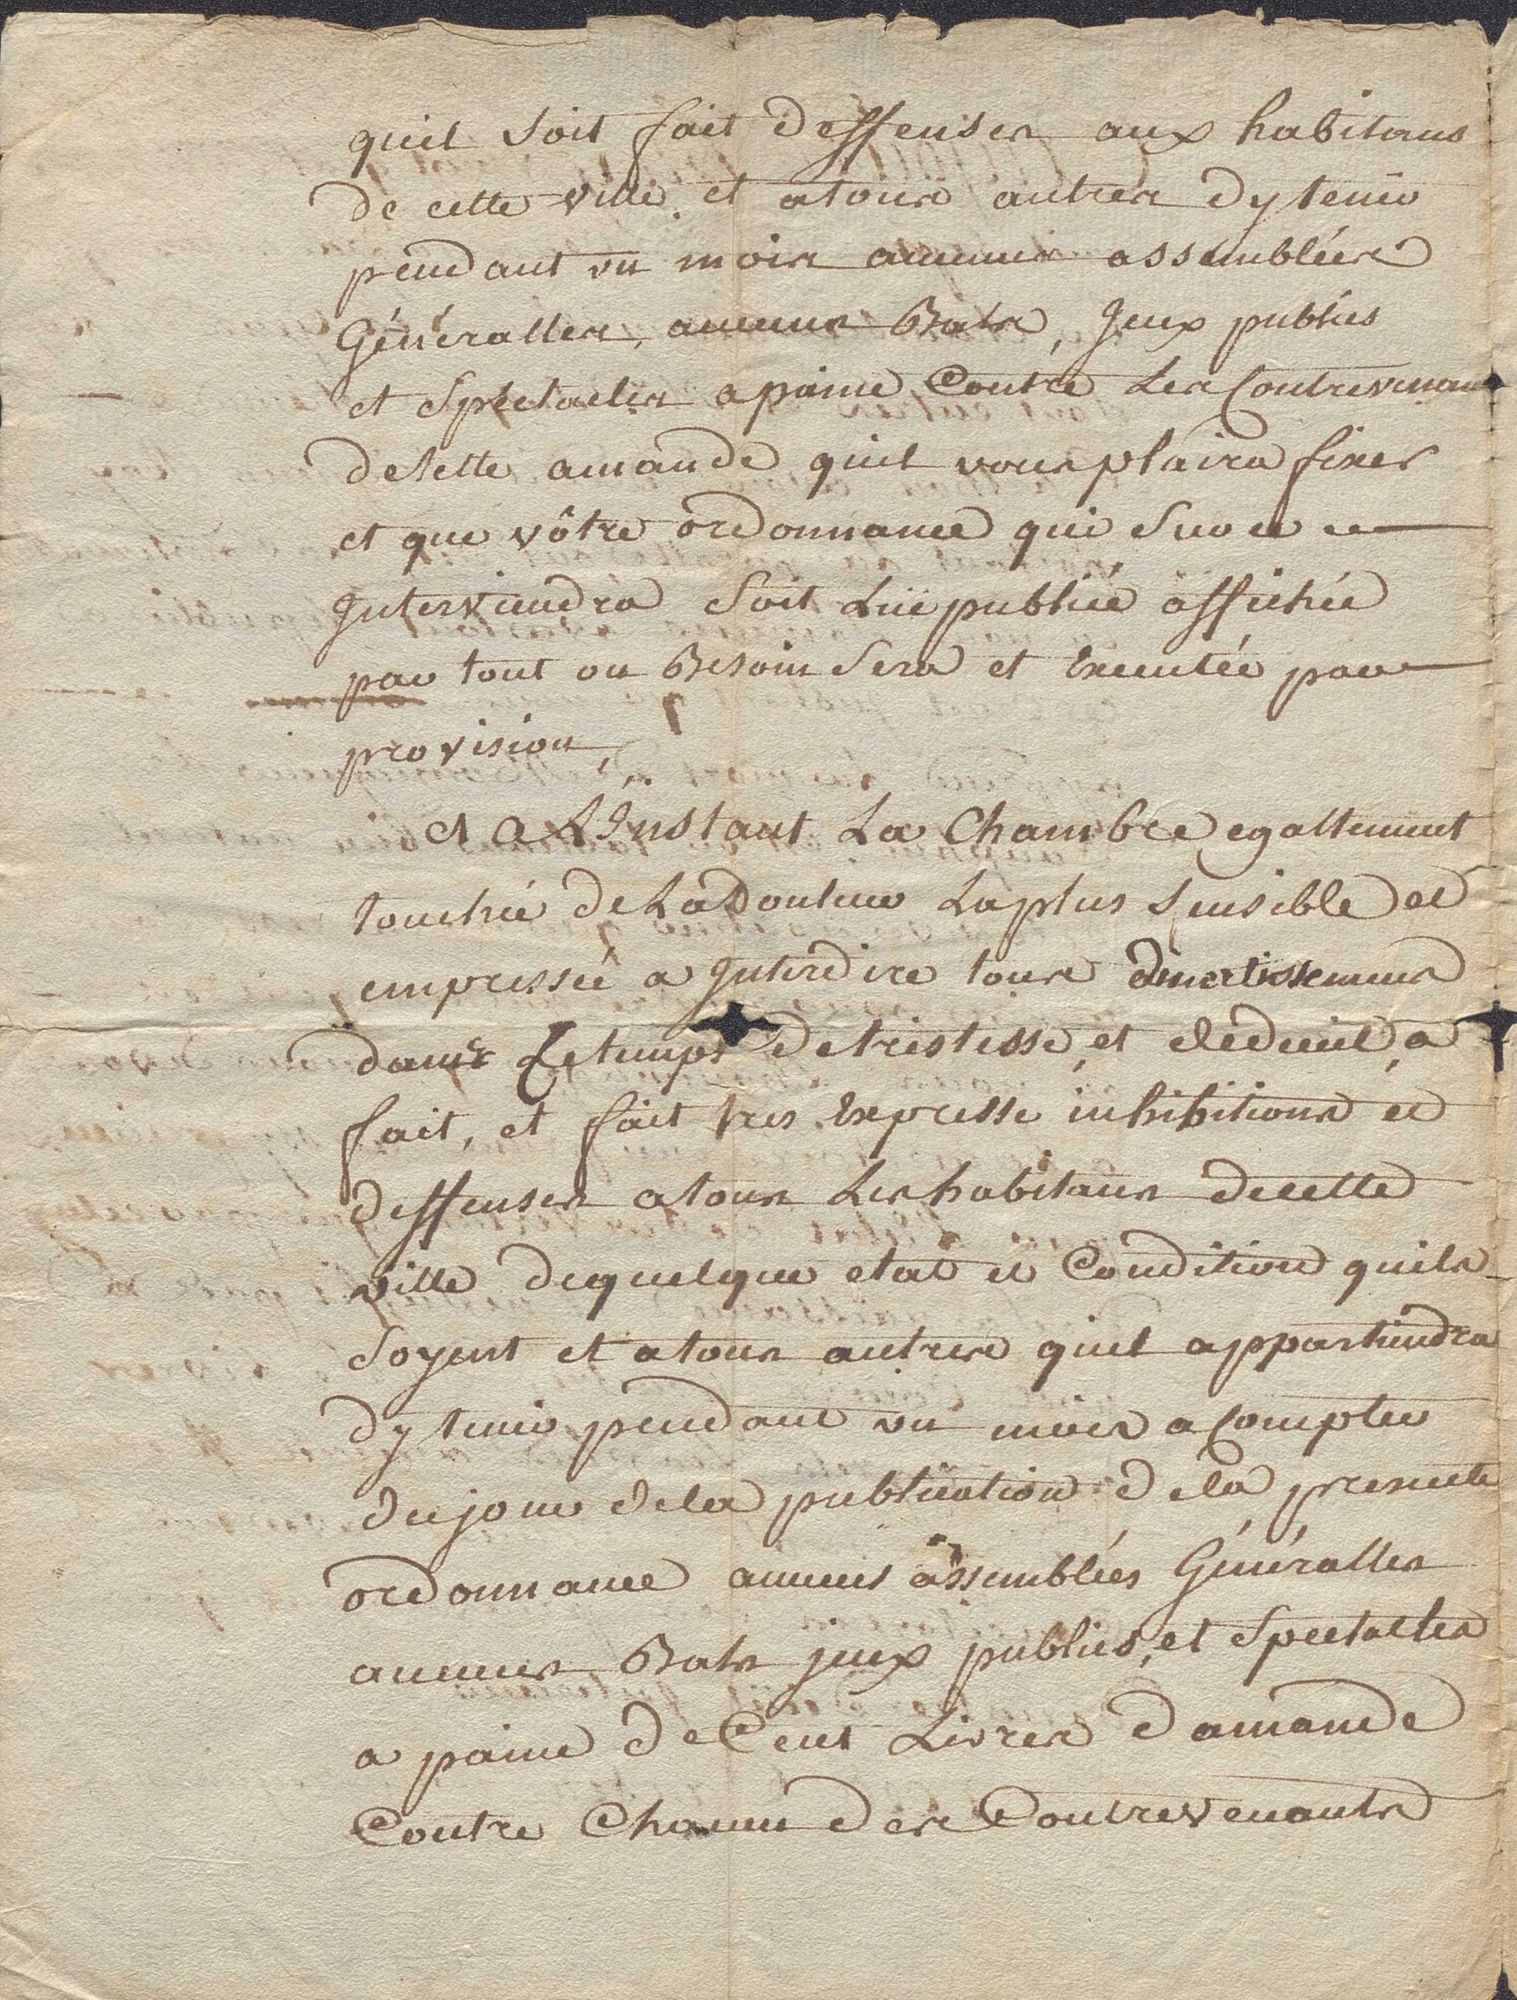 quil soit fait deffenses aux habitans
de cette ville et atous autres dy tenir
pendant un mois aucunes assemblées
Généralles, aucuns Bals, Jeux publics
et Spéctacles apaine Contre Les Contrevenans
detelle amande quil vous plaira fixer
et que vôtre ordonnance qui Sur ce
Interviendra Soit Lüe publiée affichée
par tout ou Besoin Sera et Executée par
provision,
et a L'Instant La Chambre egallement
touchée de La Douleur La plus Sensible et
empressée a Interdire tous divertissemens
dans Le temps de tristesse, et de deüil, a
fait, et fait tres Expresse inhibitions et
deffenses atous Les habitans decette
ville dequelque etat et Condition quils
Soyent et atous autres quil appartiendra
dy tenir pendant un mois a Compter
du jour dela publication dela presente
ordonnance aucunes assemblées Généralles
aucuns Bals jeux publics, et Spectacles
a paine de Cent Livres damande
Contre Chacun des Contrevenants